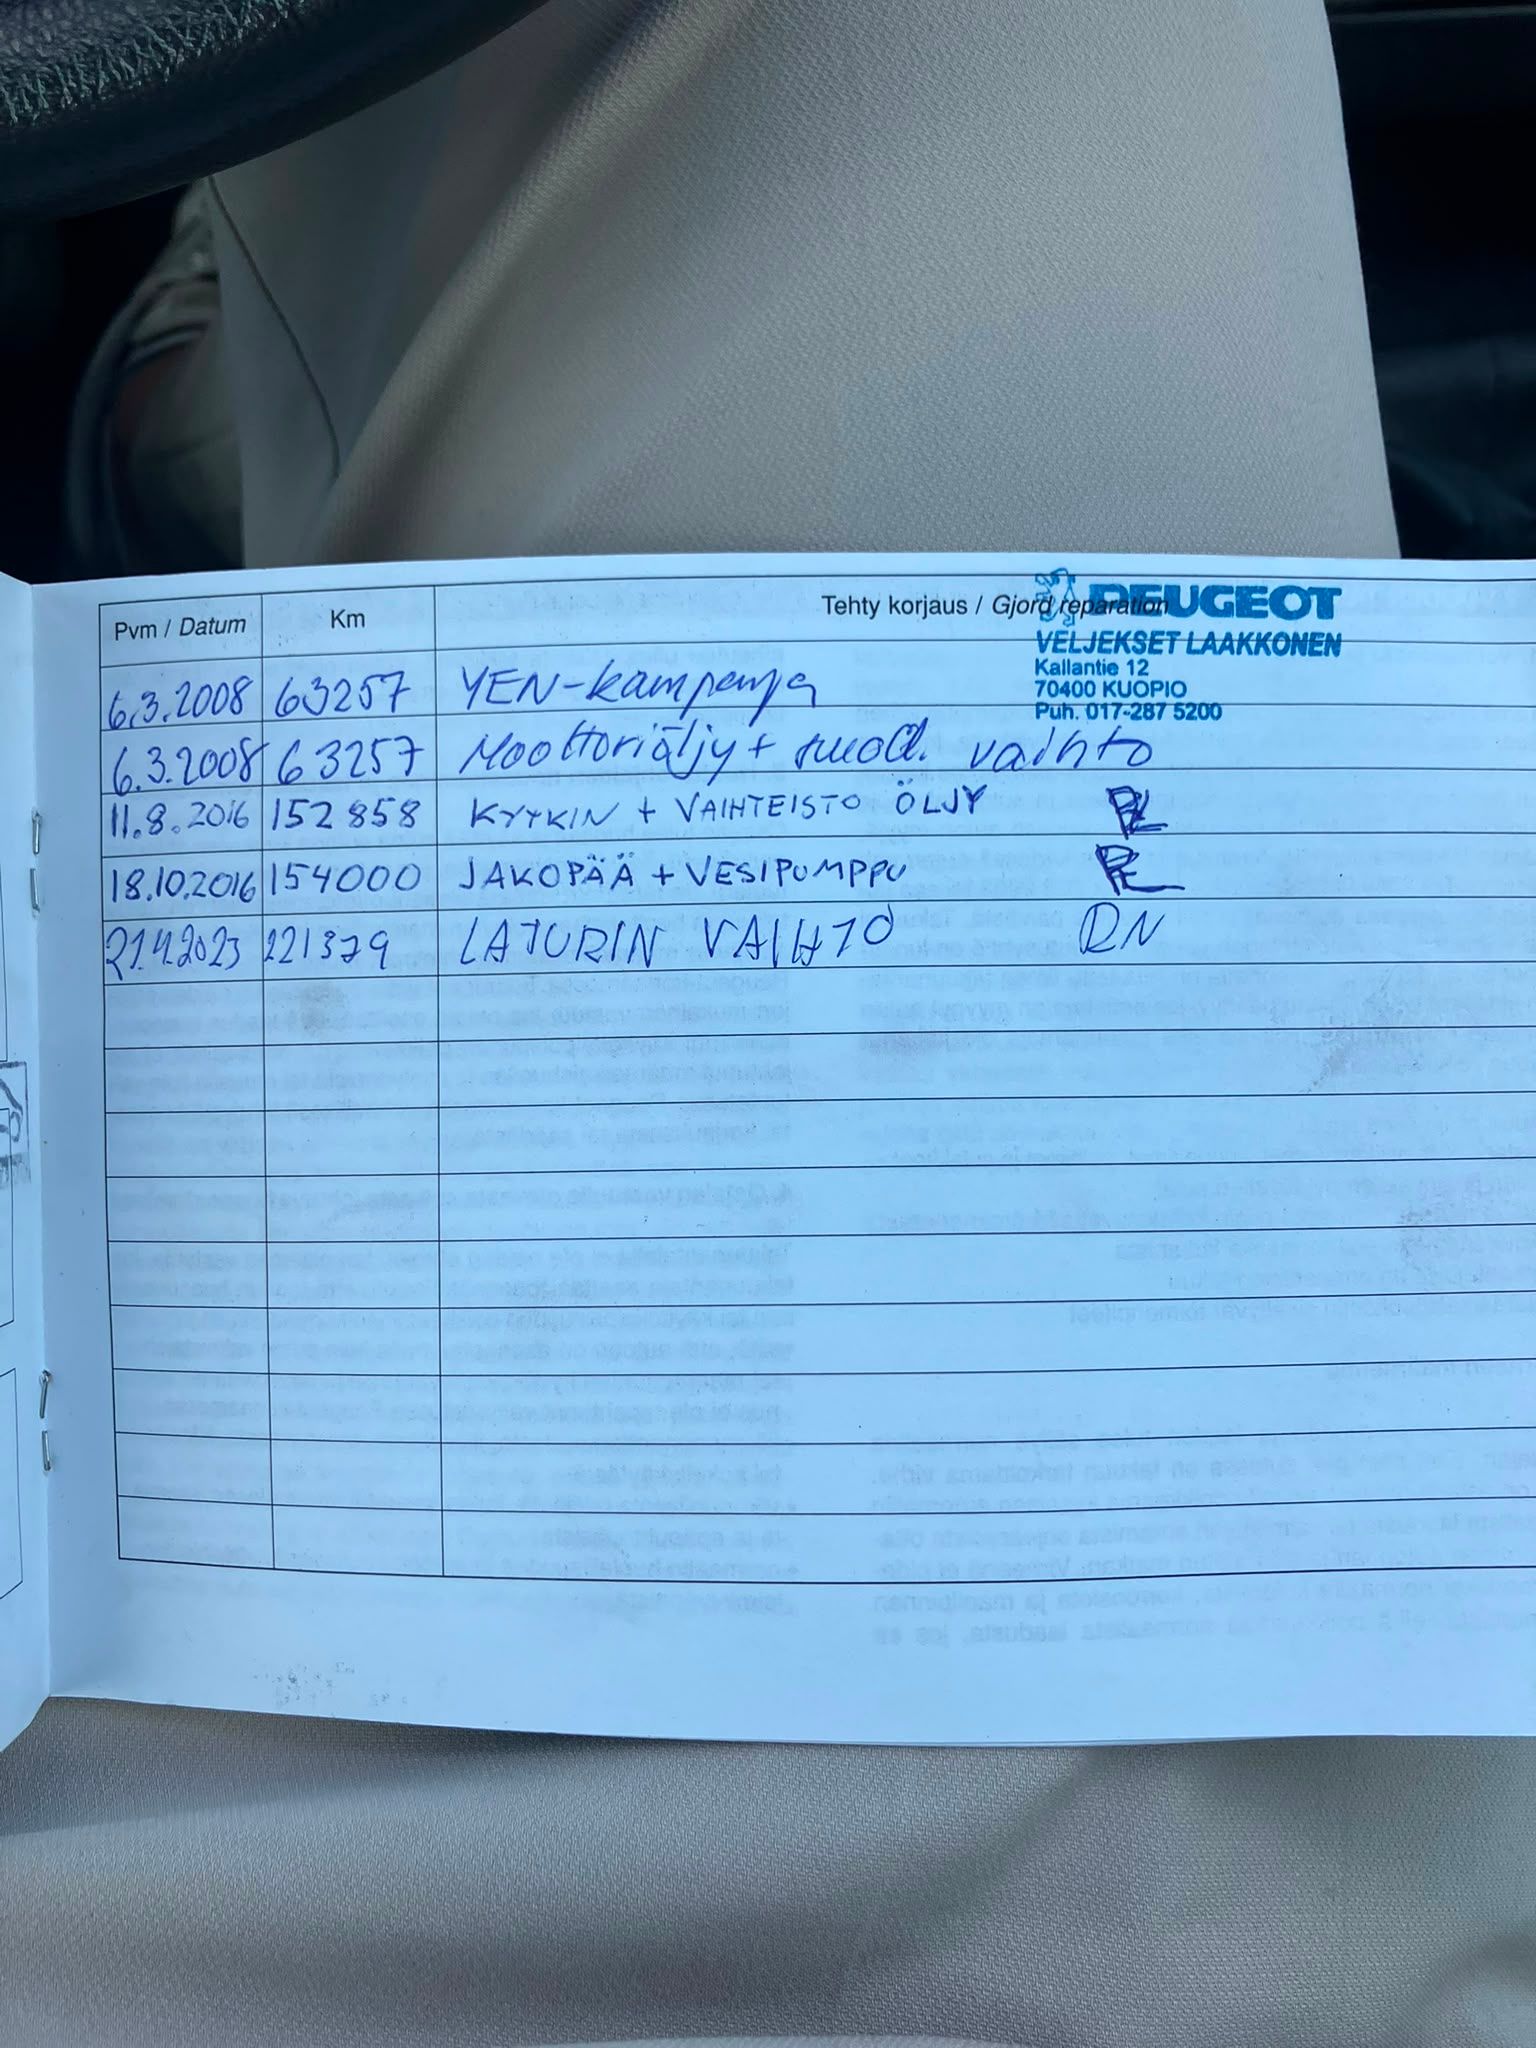 Pvm / Datum Km Tehty korjaus / Gjord reparation
PEUGEOT
VELJEKSET LAAKKONEN
Kallantie 12
70400 KUOPIO
Puh. 017-287 5200
6.3.2008 63257 YEN-kampanja
6.3.2008 63257 Moottoriöljy + suod. vaihto
11.8.2016 152858 KYTKIN + VAIHTEISTO ÖLJY
18.10.2016 154000 JAKOPÄÄ + VESIPUMPPU
21.4.2023 221379 LATURIN VAIHTO RN